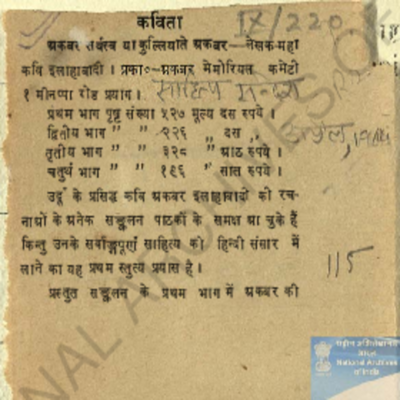 कविता
IX/220
अकबर सर्वस्व या कुल्लियाते अकबर—लेखक-महा
कवि इलाहाबादी । प्रका०—अकबर मेमोरियल कमेटी
१ मीनप्पा रोड प्रयाग ।
साहित्य सन्देश
प्रथम भाग पृष्ठ संख्या ५२७ मूल्य दस रुपये ।
द्वितीय भाग ” ” २२६ ,, दस ,,
तृतीय भाग ” ” ३२८ ” आठ रुपये ।
चतुर्थ भाग ” ” १९६ ,, सात रुपये ।
उर्दू के प्रसिद्ध कवि अकबर इलाहाबादी की रच-
नाओं के अनेक सङ्कलन पाठकों के समक्ष आ चुके हैं
किन्तु उनके सर्वाङ्गपूर्ण साहित्य को हिन्दी संसार में
लाने का यह प्रथम स्तुत्य प्रयास है ।
115
प्रस्तुत सङ्कलन के प्रथम भाग में अकबर की
राष्ट्रीय अभिलेखागार
भारत
National Archives
of India